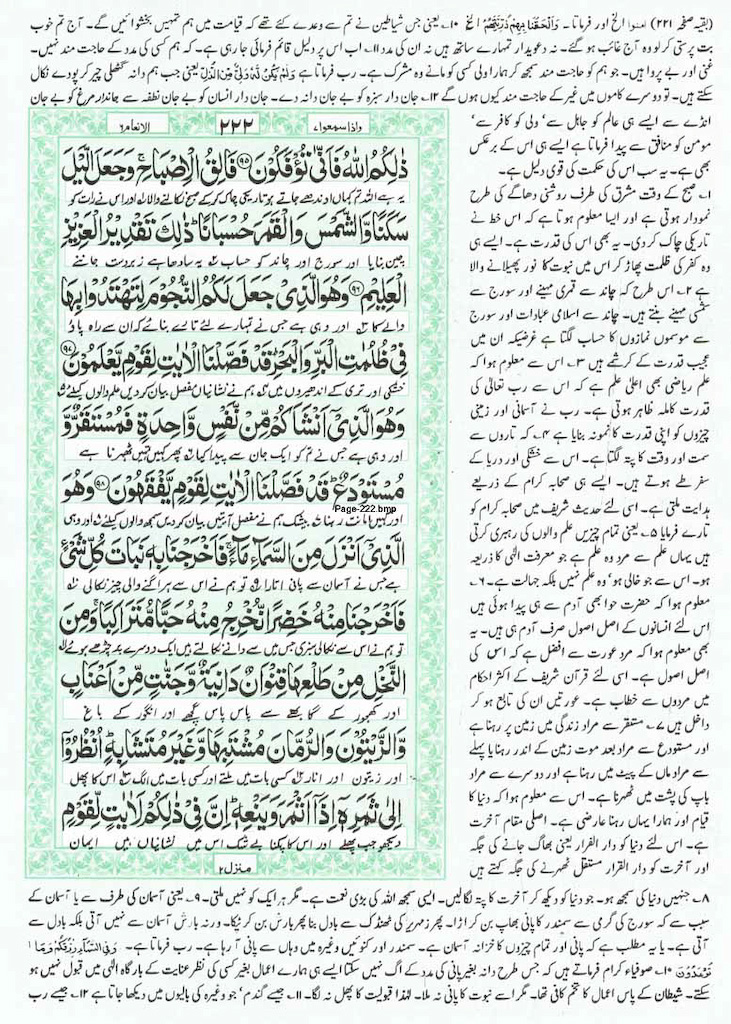 (بقیہ صفحہ ۲۲۱) امنوا الخ اور فرماتا۔ وَاَلْحَقْنَا بِهِمْ ذُرِّيَّتَهُمْ الخ ۱۰۔ یعنی جن شیاطین نے تم سے وعدے کئے تھے کہ قیامت میں ہم تمہیں بخشوائیں گے۔ آج تم خوب
بت پرستی کر لو وہ آج غائب ہو گئے۔ نہ دعویدار تمہارے ساتھ ہیں نہ ان کی مدد ۱۱۔ اب اس پر دلیل قائم فرمائی جا رہی ہے۔ کہ ہم کسی کی مدد کے حاجت مند نہیں۔
غنی اور بے پرواہیں۔ جو ہم کو حاجت مند سمجھ کر ہمارا ولی کسی کو مانے وہ مشرک ہے۔ رب فرماتا ہے وَلَمْ يَكُنْ لَّهٗ وَلِيٌّ مِّنَ الذُّلِّ یعنی جب ہم دانہ گٹھلی چیر کر پودے نکال
سکتے ہیں۔ تو دوسرے کاموں میں غیر کے حاجت مند کیوں ہوں گے ۱۲۔ جان دار سبزہ کو بے جان دانہ دے۔ جان دار انسان کو بے جان نطفہ سے جاندار مرغ کو بے جان
انڈے سے ایسے ہی عالم کو جاہل سے' ولی کو کافر سے'
مومن کو منافق سے پیدا فرماتا ہے ایسے ہی اس کے برعکس
بھی ہے۔ یہ سب اس کی حکمت کی قوی دلیل ہے۔
۱۔ صبح کے وقت مشرق کی طرف روشنی دھاگے کی طرح
نمودار ہوتی ہے اور ایسا معلوم ہوتا ہے کہ اس خط نے
تاریکی چاک کر دی۔ یہ بھی اس کی قدرت ہے۔ ایسے ہی
وہ کفر کی ظلمت پھاڑ کر اس میں نبوت کا نور پھیلانے والا
ہے ۲۔ اس طرح کہ چاند سے قمری مہینے اور سورج سے
شمسی مہینے بنتے ہیں۔ چاند سے اسلامی عبادات اور سورج
سے موسموں نمازوں کا حساب لگتا ہے غرضیکہ ان میں
عجیب قدرت کے کرشمے ہیں ۳۔ اس سے معلوم ہوا کہ
علم ریاضی بھی اعلیٰ علم ہے کہ اس سے رب تعالیٰ کی
قدرت کاملہ ظاہر ہوتی ہے۔ رب نے آسمانی اور زمینی
چیزوں کو اپنی قدرت کا نمونہ بنایا ہے ۴۔ کہ تاروں سے
سمت اور وقت کا پتہ لگتا ہے۔ اس سے خشکی اور دریا کے
سفر طے ہوتے ہیں۔ ایسے ہی صحابہ کرام کے ذریعے
ہدایت ملتی ہے۔ اسی لئے حدیث شریف میں صحابہ کرام کو
تارے فرمایا ۵۔ یعنی تمام چیزیں علم والوں کی رہبری کرتی
ہیں یہاں علم سے مرد وہ علم ہے جو معرفت الٰہی کا ذریعہ
ہو۔ اس سے جو خالی ہو' وہ علم نہیں بلکہ جہالت ہے۔ ۶۔
معلوم ہوا کہ حضرت حوا بھی آدم سے ہی پیدا ہوئی ہیں
اس لئے انسانوں کے اصل اصول صرف آدم ہی ہیں۔ یہ
بھی معلوم ہوا کہ مرد عورت سے افضل ہے کہ اس کی
اصل اصول ہے۔ اسی لئے قرآن شریف کے اکثر احکام
میں مردوں سے خطاب ہے۔ عورتیں ان کی تابع ہو کر
داخل ہیں ۷۔ مستقر سے مراد زندگی میں زمین پر رہنا ہے
اور مستودع سے مراد بعد موت زمین کے اندر رہنا یا پہلے
سے مراد ماں کے پیٹ میں رہنا ہے اور دوسرے سے مراد
باپ کی پشت میں ٹھہرنا ہے۔ اس سے معلوم ہوا کہ دنیا کا
قیام اور ہمارا یہاں رہنا عارضی ہے۔ اصلی مقام آخرت
ہے۔ اس لئے دنیا کو دار الفرار یعنی بھاگ جانے کی جگہ
اور آخرت کو دار القرار مستقل ٹھہرنے کی جگہ کہتے ہیں
واذا سمعوا ۷ ۲۲۲ الانعام ۶
ذٰلِكُمُ اللّٰهُ فَاَنّٰى تُؤْفَكُوْنَ ۹۵ فَالِقُ الْاِصْبَاحِ ۚ وَجَعَلَ الَّيْلَ
یہ ہے اللہ تم کہاں اوندھے جاتے ہو تاریکی چاک کر کے صبح نکالنے والا ۱۔ اور اس نے رات کو
سَكَنًا وَّالشَّمْسَ وَالْقَمَرَ حُسْبَانًا ؕ ذٰلِكَ تَقْدِيْرُ الْعَزِيْزِ
چین بنایا اور سورج اور چاند کو حساب ۲۔ یہ سادھا ہے زبردست جاننے
الْعَلِيْمِ ۹۶ وَهُوَ الَّذِيْ جَعَلَ لَكُمُ النُّجُوْمَ لِتَهْتَدُوْا بِهَا
والے کا ۳۔ اور وہی ہے جس نے تمہارے لئے تارے بنائے کہ ان سے راہ پاؤ
فِيْ ظُلُمٰتِ الْبَرِّ وَالْبَحْرِ ؕ قَدْ فَصَّلْنَا الْاٰيٰتِ لِقَوْمٍ يَّعْلَمُوْنَ ۹۷
خشکی اور تری کے اندھیروں میں ۴۔ ہم نے نشانیاں مفصل بیان کر دیں علم والوں کیلئے ۵۔
وَهُوَ الَّذِيْٓ اَنْشَاَكُمْ مِّنْ نَّفْسٍ وَّاحِدَةٍ فَمُسْتَقَرٌّ وَّ
اور وہی ہے جس نے تم کو ایک جان سے پیدا کیا ۶۔ پھر کہیں تمہیں ٹھہرنا ہے
مُسْتَوْدَعٌ ؕ قَدْ فَصَّلْنَا الْاٰيٰتِ لِقَوْمٍ يَّفْقَهُوْنَ ۹۸ وَهُوَ
اور کہیں امانت رہنا ۷۔ بیشک ہم نے مفصل آیتیں بیان کر دیں سمجھ والوں کیلئے ۸۔ اور وہی
Page-222.bmp
الَّذِيْٓ اَنْزَلَ مِنَ السَّمَآءِ مَآءً ۚ فَاَخْرَجْنَا بِهٖ نَبَاتَ كُلِّ شَيْءٍ
ہے جس نے آسمان سے پانی اتارا ۹۔ تو ہم نے اس سے ہر اگنے والی چیز نکالی ۱۰۔
فَاَخْرَجْنَا مِنْهُ خَضِرًا نُّخْرِجُ مِنْهُ حَبًّا مُّتَرَاكِبًا ۚ وَمِنَ
تو ہم نے اس سے نکالی سبزی جس میں سے دانے نکالتے ہیں ایک دوسرے پر چڑھے ہوئے ۱۱۔
النَّخْلِ مِنْ طَلْعِهَا قِنْوَانٌ دَانِيَةٌ وَّجَنّٰتٍ مِّنْ اَعْنَابٍ
اور کھجور کے گابھے سے پاس پاس گچھے اور انگور کے باغ
وَّالزَّيْتُوْنَ وَالرُّمَّانَ مُشْتَبِهًا وَّغَيْرَ مُتَشَابِهٍ ؕ اُنْظُرُوْٓا
اور زیتون اور انار کسی بات میں ملتے اور کسی بات میں الگ ۱۲۔ اس کا پھل
اِلٰى ثَمَرِهٖٓ اِذَآ اَثْمَرَ وَيَنْعِهٖ ؕ اِنَّ فِيْ ذٰلِكُمْ لَاٰيٰتٍ لِّقَوْمٍ
دیکھو جب پھلے اور اس کا پکنا بے شک اس میں نشانیاں ہیں ایمان
منزل ۲
۸۔ جنہیں دنیا کی سمجھ ہو۔ جو دنیا کو دیکھ کر آخرت کا پتہ لگالیں۔ ایسی سمجھ اللہ کی بڑی نعمت ہے۔ مگر ہر ایک کو نہیں ملتی۔ ۹۔ یعنی آسمان کی طرف سے یا آسمان کے
سبب سے کہ سورج کی گرمی سے سمندر کا پانی بھاپ بن کر اڑا۔ پھر زمہریر کی ٹھنڈک سے بادل بنا پھر بارش بن کر ٹپکا۔ ورنہ بارش آسمان سے نہیں آتی بلکہ بادل سے
آتی ہے۔ یا یہ مطلب ہے کہ پانی اور تمام چیزوں کا خزانہ آسمان ہے۔ سمندر اور کنوئیں وغیرہ میں وہاں سے پانی آ رہا ہے۔ رب فرماتا ہے۔ وَفِي السَّمَآءِ رِزْقُكُمْ وَمَا
تُوْعَدُوْنَ ۱۰۔ صوفیاء کرام فرماتے ہیں کہ جس طرح دانہ بغیر پانی کی مدد کے اگ نہیں سکتا ایسے ہی ہمارے اعمال بغیر کسی کی نظر عنایت کے بارگاہ الٰہی میں قبول نہیں ہو
سکتے۔ شیطان کے پاس اعمال کا تخم کافی تھا۔ مگر اسے نبوت کا پانی نہ ملا۔ لہٰذا قبولیت کا پھل نہ لگا۔ ۱۱۔ جیسے گندم' جو وغیرہ کی بالیوں میں دیکھا جاتا ہے ۱۲۔ جیسے رب